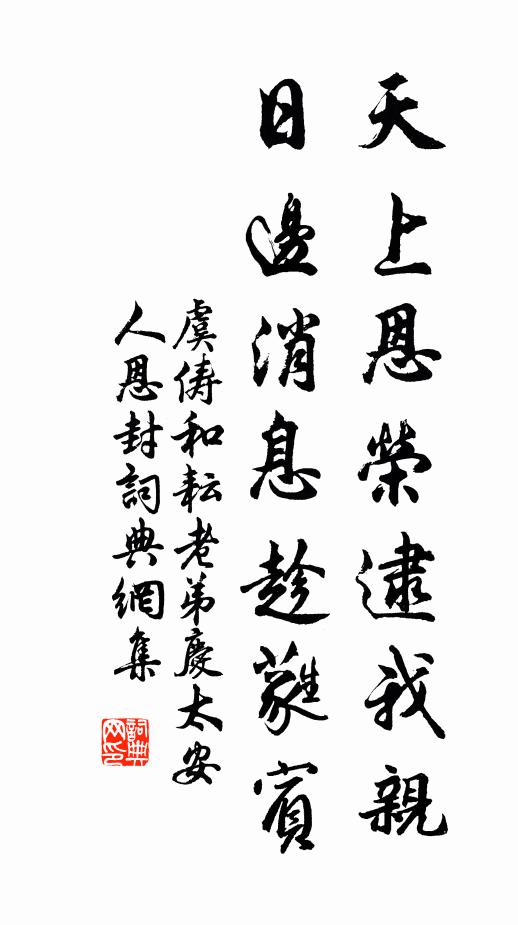 天上恩榮逮我親
日邊消息趁蕤賓
虞儔和耘老弟慶太安
人恩封詞典網集
詞典
网印